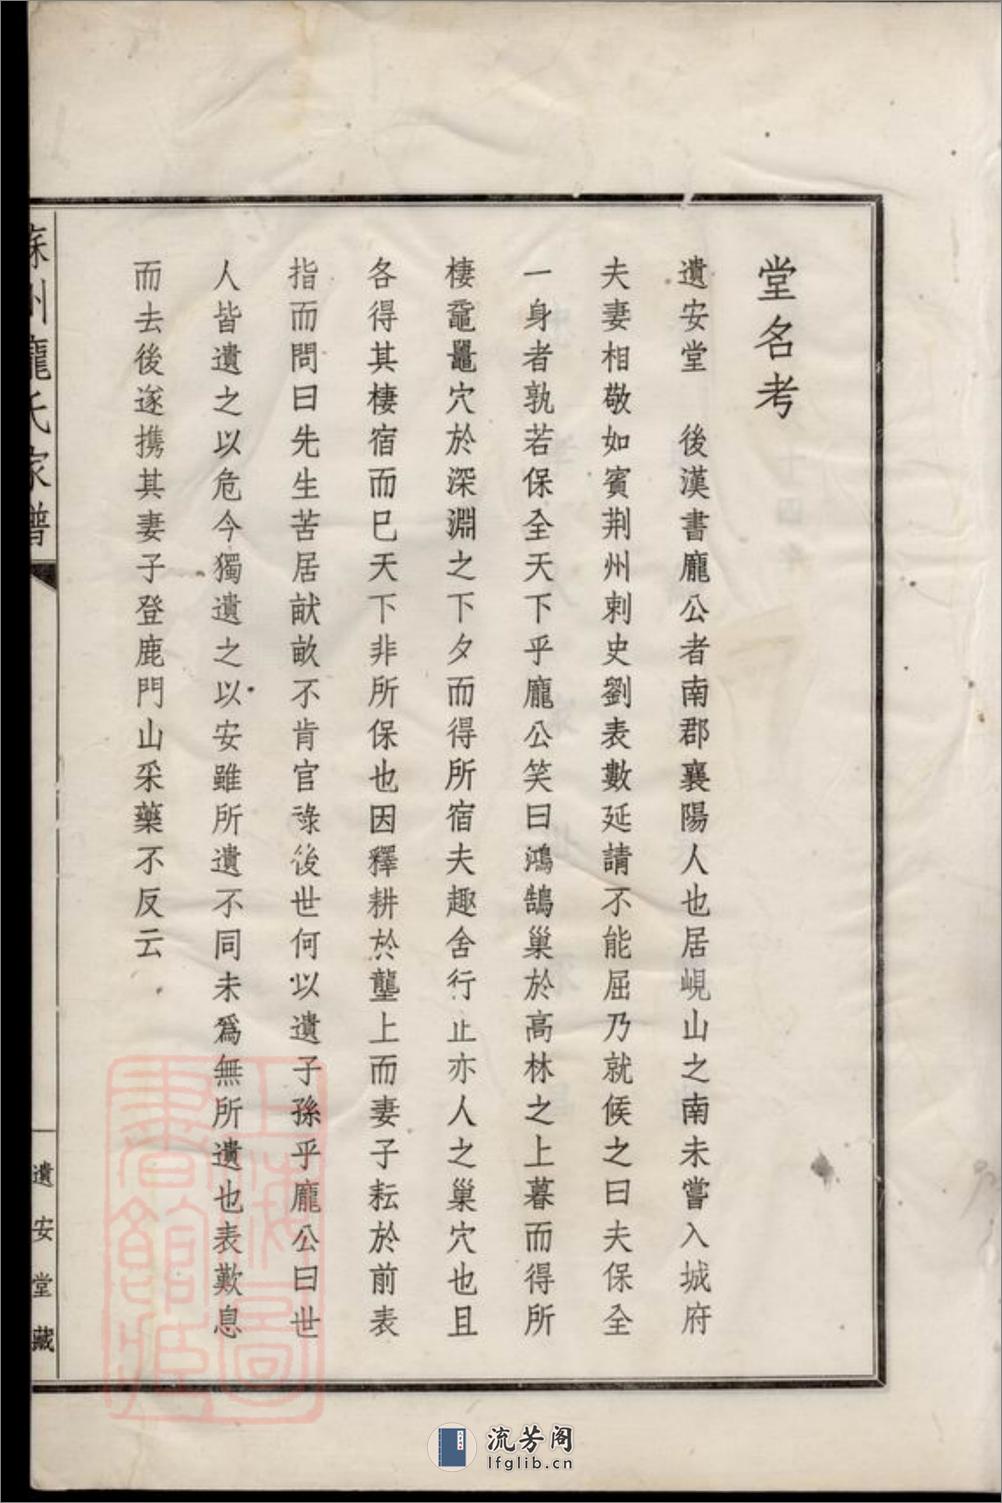 堂名考
遺安堂　後漢書龐公者南郡襄陽人也居峴山之南未嘗入城府
夫妻相敬如賓荆州刺史劉表數延請不能屈乃就候之曰夫保全
一身者孰若保全天下乎龐公笑曰鴻鵠巢於高林之上暮而得所
棲黿鼉穴於深淵之下夕而得所宿夫趣舍行止亦人之巢穴也且
各得其棲宿而已天下非所保也因釋耕於壟上而妻子耘於前表
指而問曰先生苦居畎畝不肯官祿後世何以遺子孫乎龐公曰世
人皆遺之以危今獨遺之以安雖所遺不同未為無所遺也表歎息
而去後遂携其妻子登鹿門山采藥不反云
蘇州龐氏家譜
遺安堂藏
上海圖書館藏
流芳阁
lfglib.cn